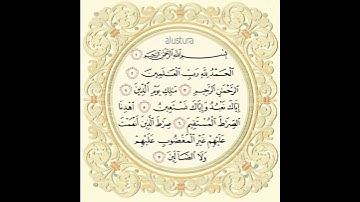 alustura
بِسْمِ ٱللَّهِ ٱلرَّحْمَٰنِ ٱلرَّحِيمِ ١
ٱلْحَمْدُ لِلَّهِ رَبِّ ٱلْعَٰلَمِينَ ٢
ٱلرَّحْمَٰنِ ٱلرَّحِيمِ ٣ مَٰلِكِ يَوْمِ ٱلدِّينِ ٤
إِيَّاكَ نَعْبُدُ وَإِيَّاكَ نَسْتَعِينُ ٥ ٱهْدِنَا
ٱلصِّرَٰطَ ٱلْمُسْتَقِيمَ ٦ صِرَٰطَ ٱلَّذِينَ أَنْعَمْتَ
عَلَيْهِمْ غَيْرِ ٱلْمَغْضُوبِ عَلَيْهِمْ
وَلَا ٱلضَّآلِّينَ ٧